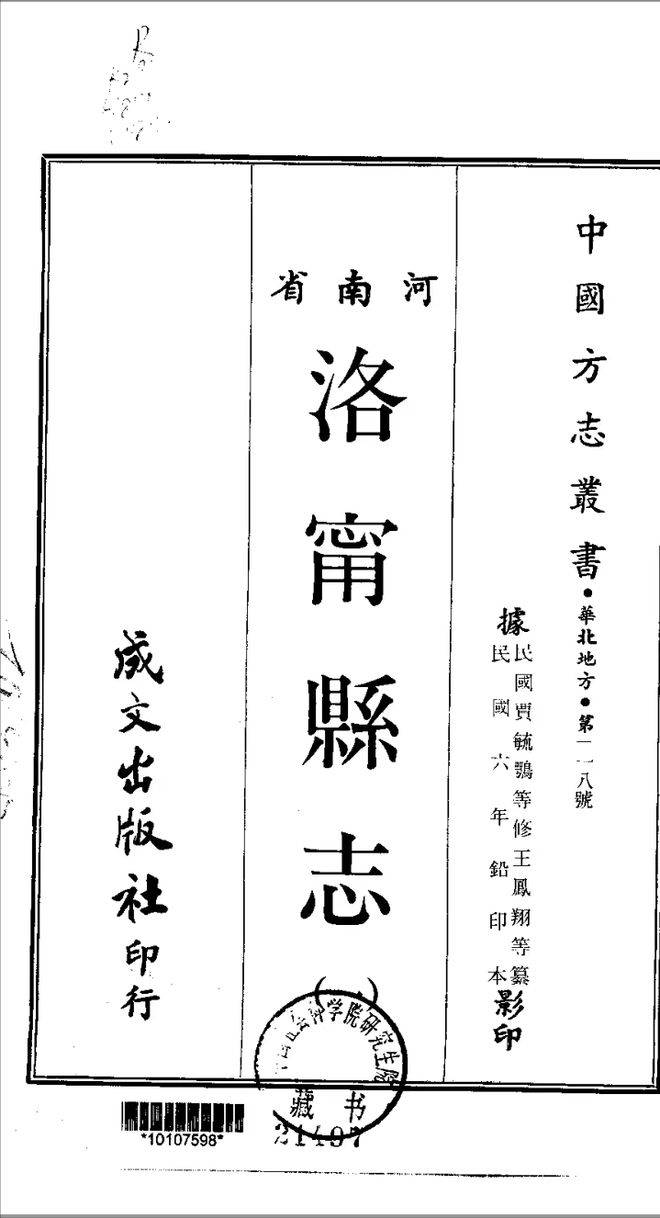 中國方志叢書●華北地方●第一一八號
據
民國賈毓鶚等修王鳳翔等纂
民國六年鉛印本
影印
河南省
洛甯縣志
成文出版社印行
社会科学院研究生院
藏书
21497
*10107598*